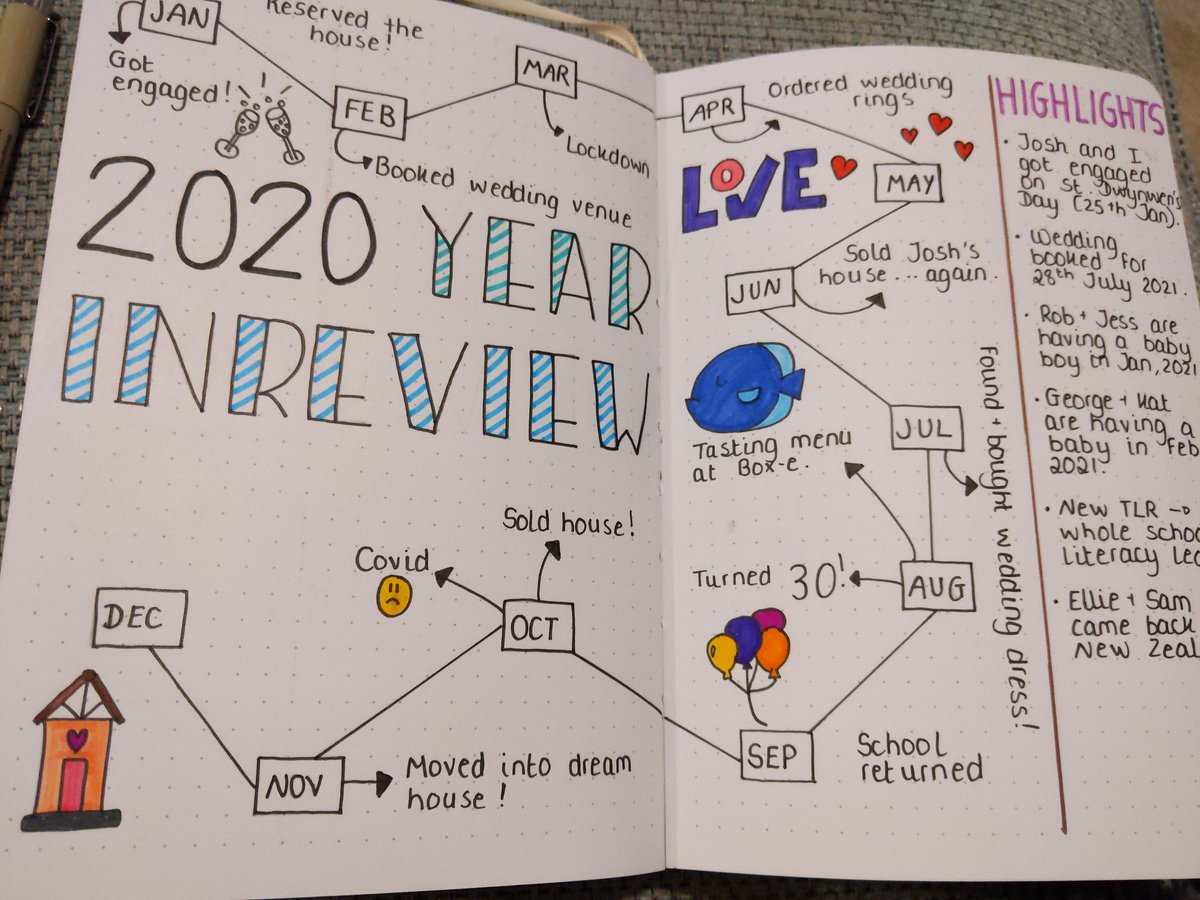 JAN
Reserved the
house!
Got
engaged!
FEB
Booked wedding venue
MAR
Lockdown
2020 YEAR
IN REVIEW
APR
Ordered wedding
rings
LOVE
MAY
JUN
Sold Josh's
house... again.
JUL
Found + bought wedding dress!
Tasting menu
at Box-e.
AUG
Turned 30!
SEP
School
returned
OCT
Sold house!
Covid
NOV
Moved into dream
house!
DEC
HIGHLIGHTS
• Josh and I
got engaged
on St. Dwynwen's
Day (25th Jan).
• Wedding
booked for
28th July 2021.
• Rob + Jess are
having a baby
boy in Jan, 2021
• George + Kat
are having a
baby in Feb
2021.
• New TLR →
whole
Literacy
• Ellie + Sam
came back
New